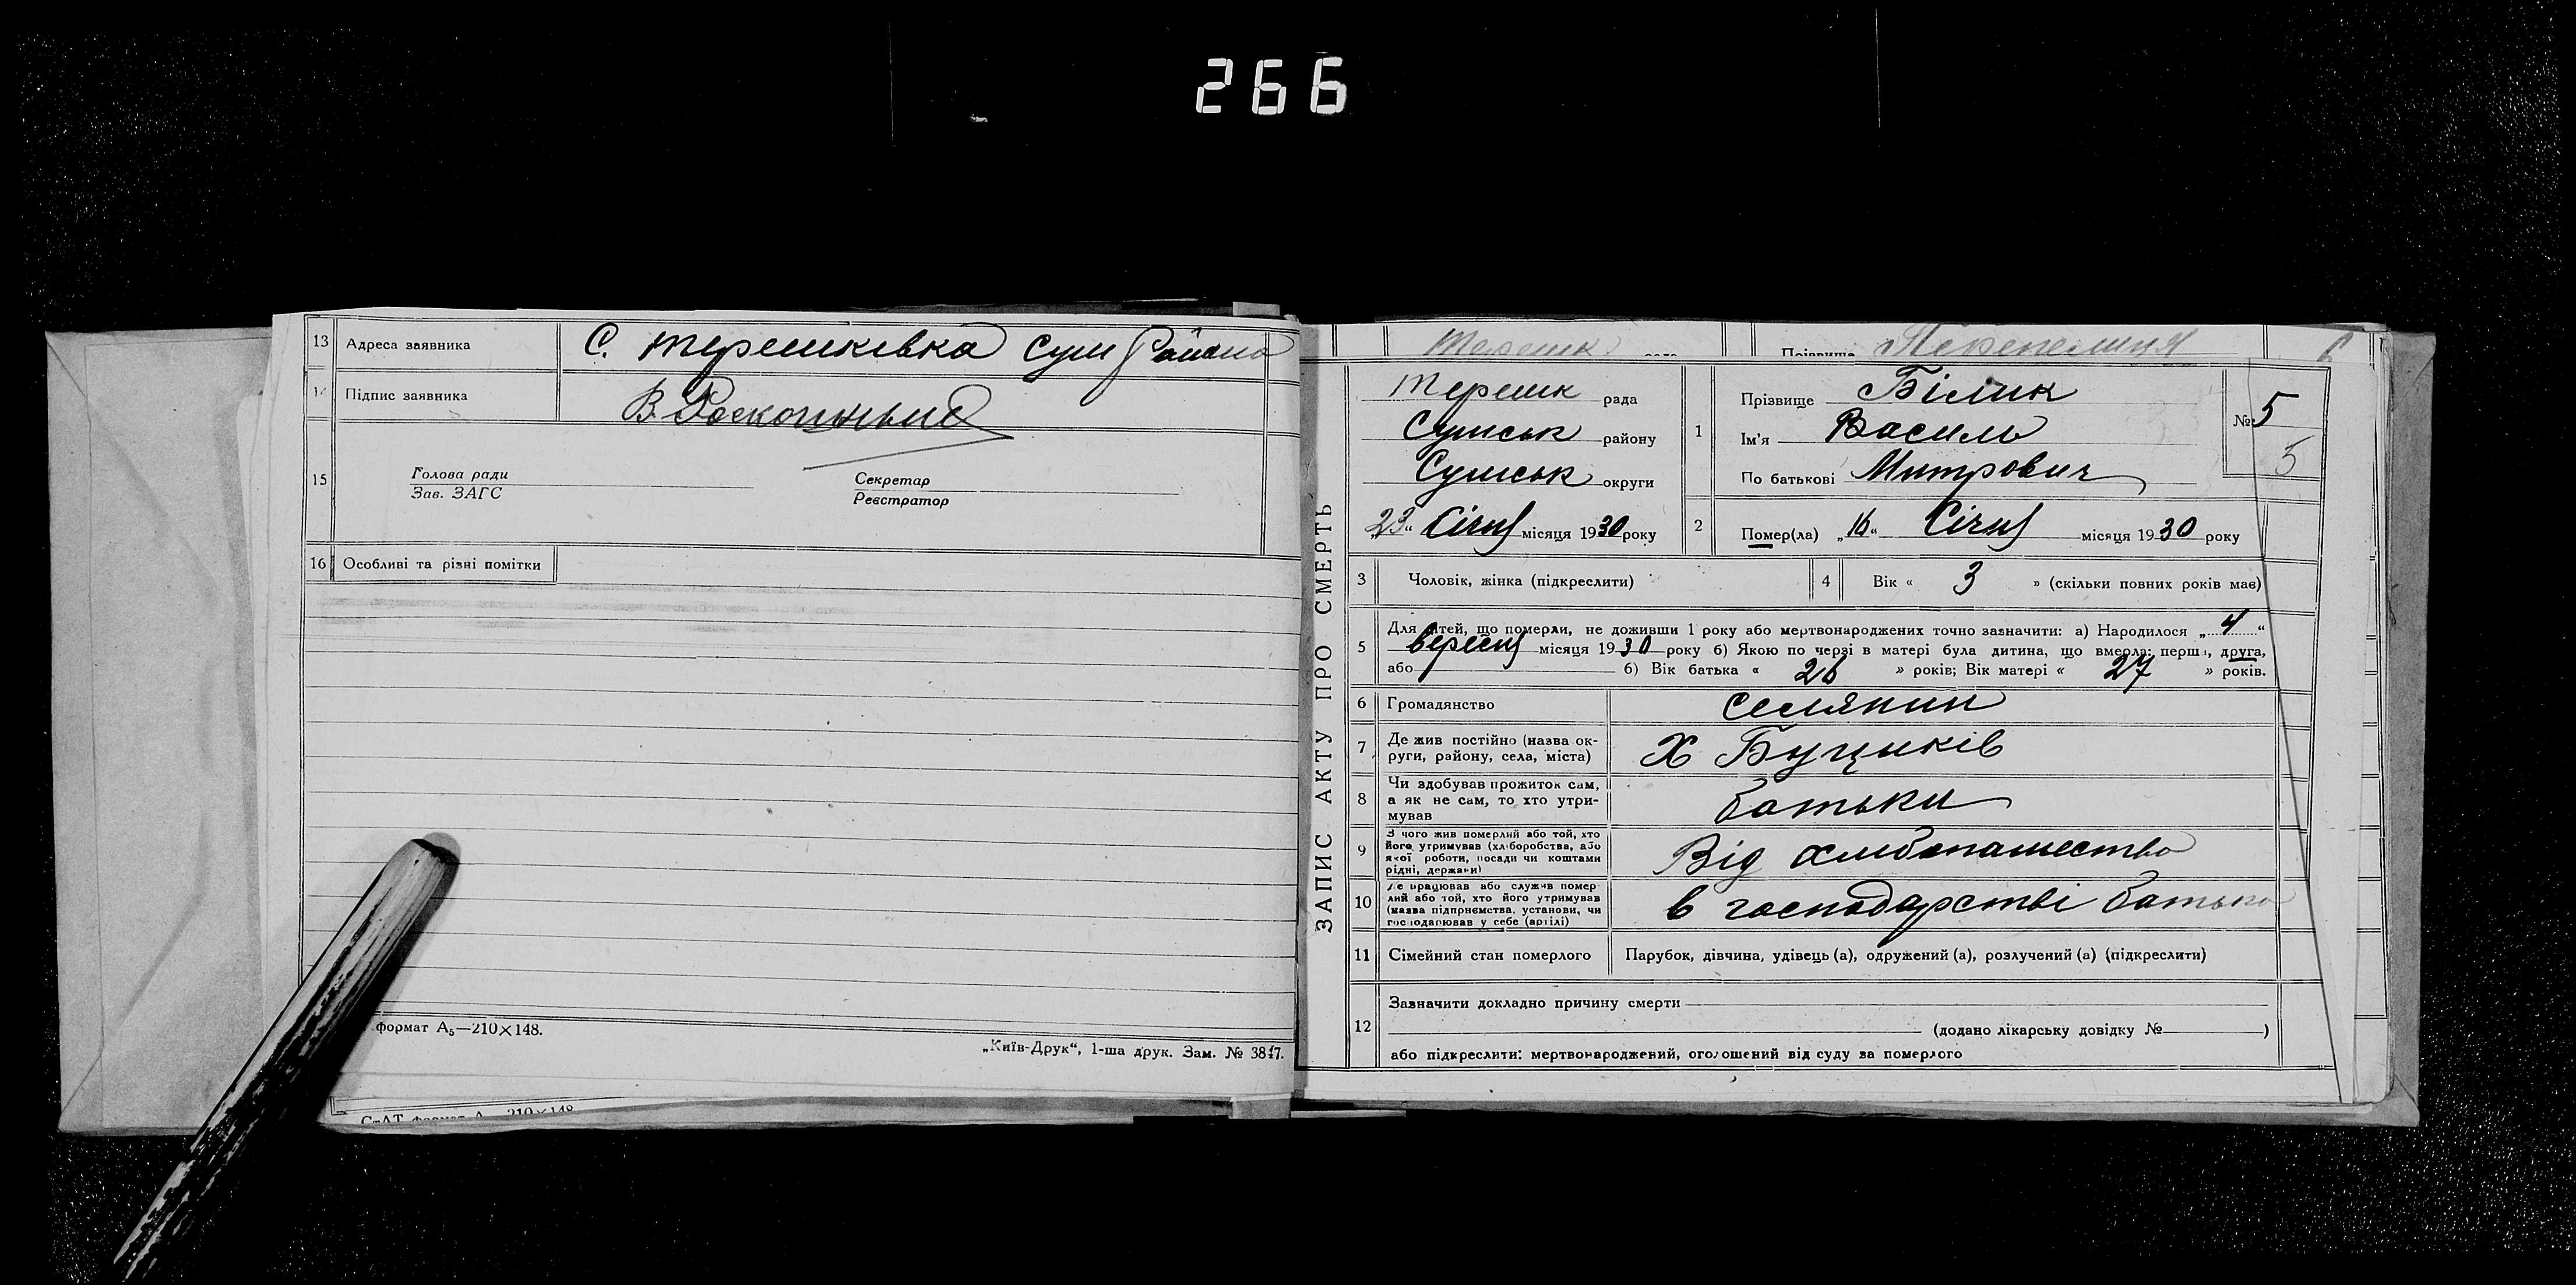 266
13 Адреса заявника С. Терешківка Сум Района
14 Підпис заявника
15 Голова ради Секретар
Зав. ЗАГС Реєстратор
16 Особливі та різні помітки
формат А₅—210×148.
„Київ-Друк“, 1-ша друк. Зам. № 3847.
СтАТ формат А 210×148
ЗАПИС АКТУ ПРО СМЕРТЬ
Терешк рада Прізвище Перепелиця 6
Терешк рада
Сумськ району
Сумськ округи
„23“ Січня місяця 1930 року
1 Прізвище Білик
Ім'я Василь
По батькові Митрович
№ 5
5
2 Помер(ла) „16“ Січня місяця 1930 року
3 Чоловік, жінка (підкреслити) 4 Вік « 3 » (скільки повних років має)
5 Для дітей, що померли, не доживши 1 року або мертвонароджених точно зазначити: а) Народилося „4“
вересня місяця 1930 року б) Якою по черзі в матері була дитина, що вмерла: перша, друга,
або б) Вік батька « 26 » років; Вік матері « 27 » років.
6 Громадянство селянин
7 Де жив постійно (назва округи, району, села, міста) Х Буциків
8 Чи здобував прожиток сам, а як не сам, то хто утримував батьки
9 З чого жив померлий або той, хто його утримував (хліборобства, або якої роботи, посади чи коштами рідні, держави) Від хлибопашества
10 Де працював або служив померлий або той, хто його утримував (назва підприємства, установи, чи господарював у себе (артілі) в господарстві батька
11 Сімейний стан померлого Парубок, дівчина, удівець (а), одружений (а), розлучений (а) (підкреслити)
12 Зазначити докладно причину смерти
(додано лікарську довідку № )
або підкреслити: мертвонароджений, оголошений від суду за померлого